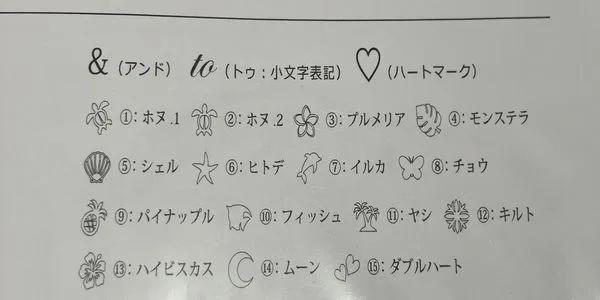 & (アンド) to (トゥ：小文字表記) ♡ (ハートマーク)
①：ホヌ.1 ②：ホヌ.2 ③：プルメリア ④：モンステラ
⑤：シェル ⑥：ヒトデ ⑦：イルカ ⑧：チョウ
⑨：パイナップル ⑩：フィッシュ ⑪：ヤシ ⑫：キルト
⑬：ハイビスカス ⑭：ムーン ⑮：ダブルハート